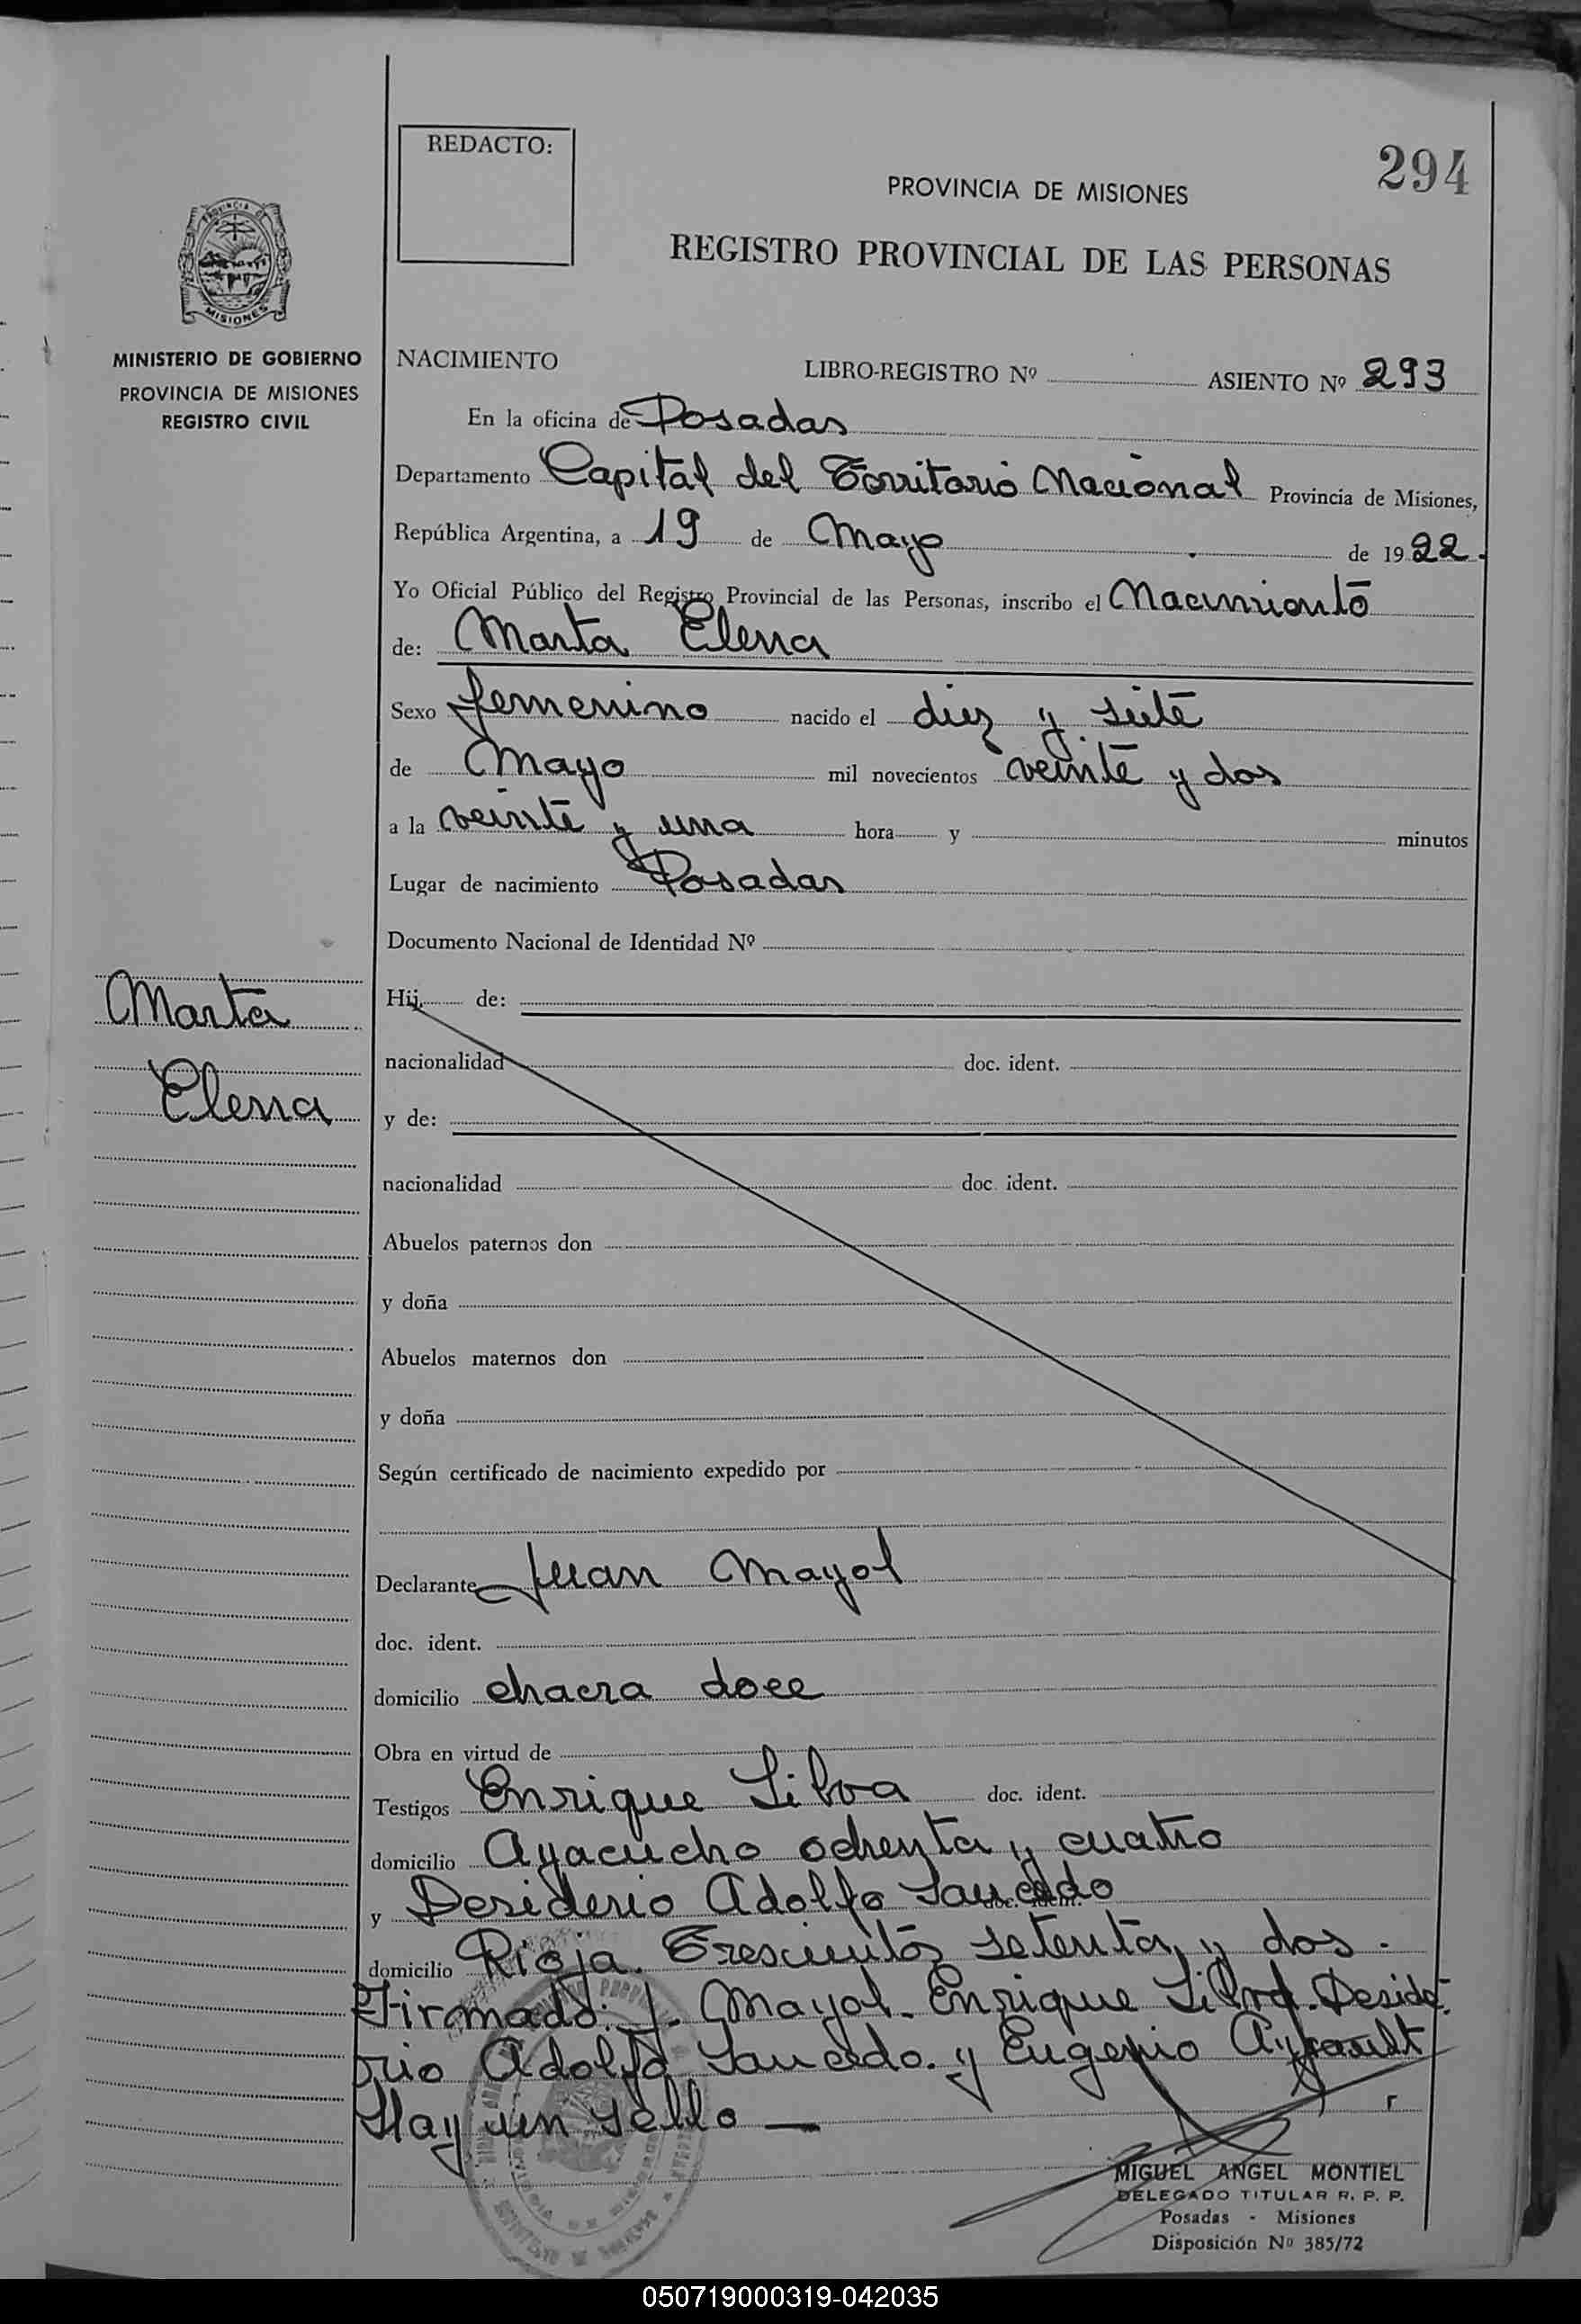 REDACTO:
294
PROVINCIA DE MISIONES
REGISTRO PROVINCIAL DE LAS PERSONAS
PROVINCIA DE
MISIONES
MINISTERIO DE GOBIERNO
PROVINCIA DE MISIONES
REGISTRO CIVIL
NACIMIENTO LIBRO-REGISTRO Nº ASIENTO Nº 293
En la oficina de Posadas
Departamento Capital del Territorio Nacional Provincia de Misiones,
República Argentina, a 19 de Mayo de 1922.
Yo Oficial Público del Registro Provincial de las Personas, inscribo el Nacimiento
de: Marta Elena
Sexo femenino nacido el diez y siete
de Mayo mil novecientos veinte y dos
a la veinte y una hora y minutos
Lugar de nacimiento Posadas
Documento Nacional de Identidad Nº
Marta
Elena
Hij de:
nacionalidad doc. ident.
y de:
nacionalidad doc. ident.
Abuelos paternos don
y doña
Abuelos maternos don
y doña
Según certificado de nacimiento expedido por
Declarante Juan Mayol
doc. ident.
domicilio chacra doce
Obra en virtud de
Testigos Enrique Silva doc. ident.
domicilio Ayacucho ochenta y cuatro
y Desiderio Adolfo Saucedo doc. ident.
domicilio Rioja Trescientos setenta y dos.
Firmado: J. Mayol. Enrique Silva. Deside-
rio Adolfo Saucedo. y Eugenio Ayrault
Hay un sello —
MIGUEL ANGEL MONTIEL
DELEGADO TITULAR R. P. P.
Posadas - Misiones
Disposición Nº 385/72
050719000319-042035